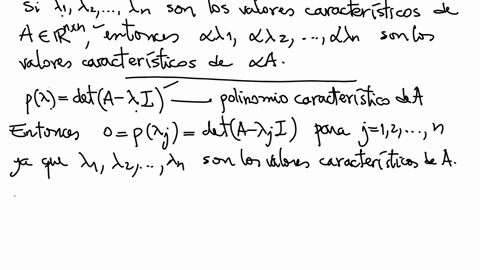 Si λ1, λ2, ..., λn son los valores característicos de
A ∈ ℝ^{n×n}, entonces αλ1, αλ2, ..., αλn son los
valores característicos de αA.
p(λ) = det(A-λI) — polinomio característico de A
Entonces 0 = p(λj) = det(A-λjI) para j=1,2,...,n
ya que λ1, λ2, ..., λn son los valores característicos de A.